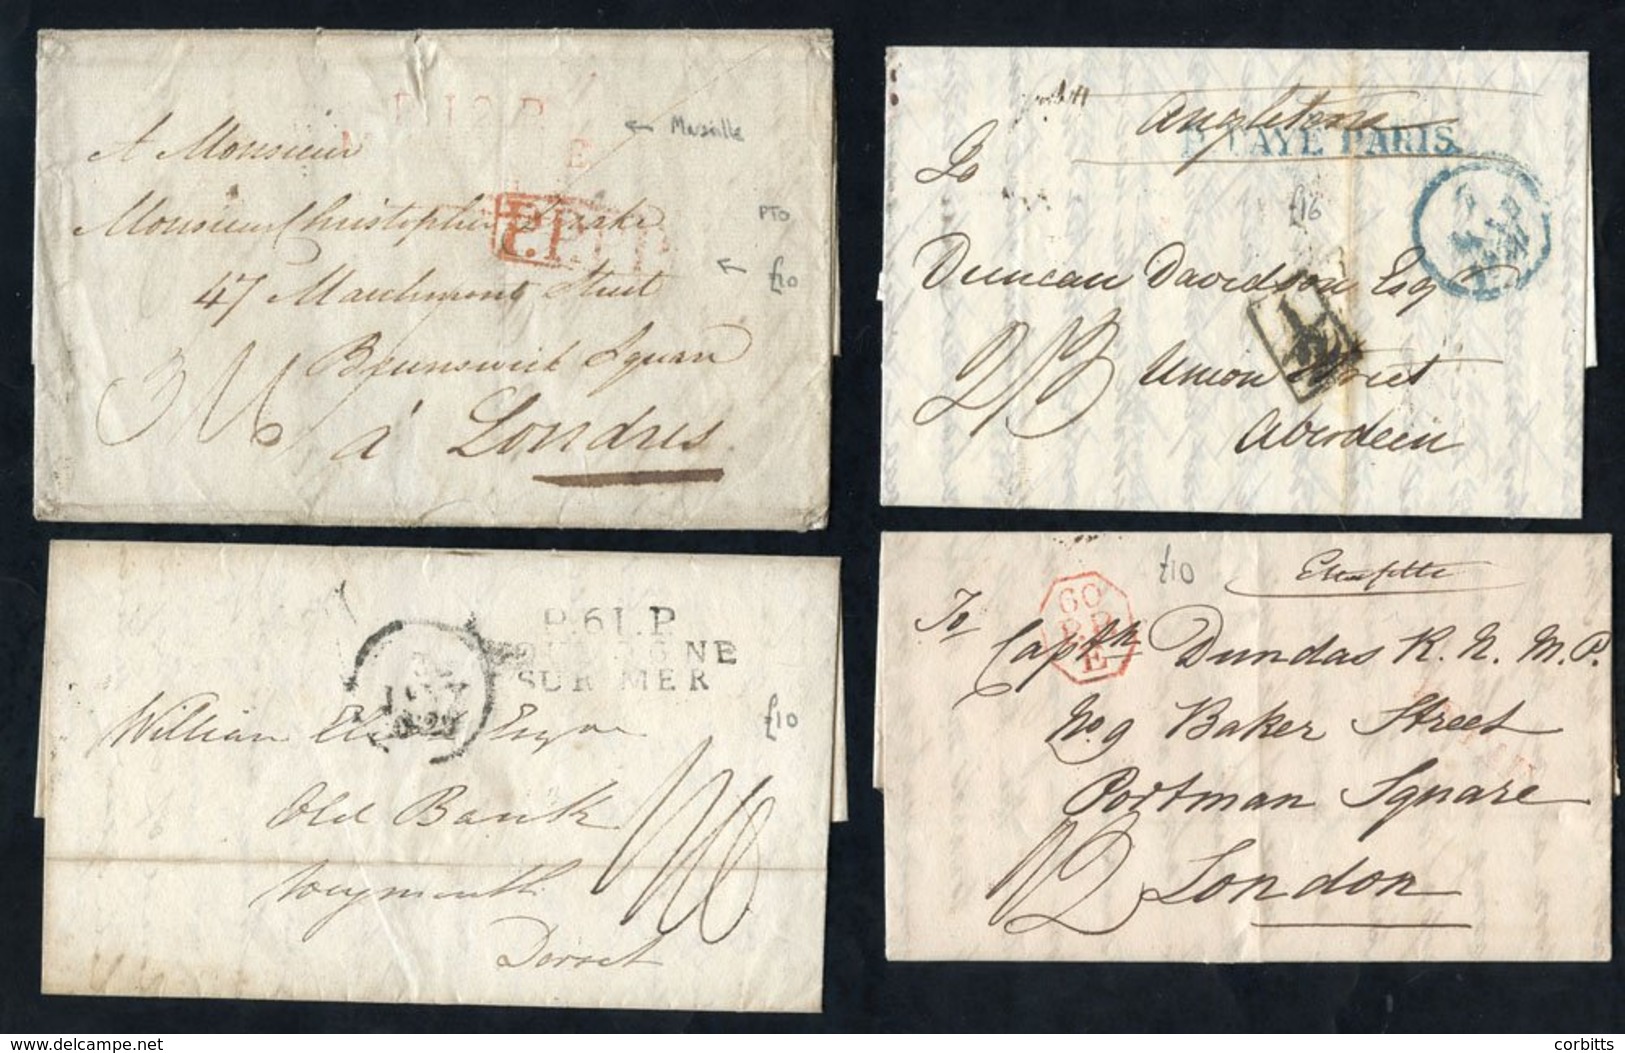 P.12.P.
← Marseille
E
A Monsieur
Monsieur Christopher
P.P.P.P.
PTO
47 Marchmont Street
← £10
Brunswick Square
à Londres
Angleterre
PAYE PARIS
To
£16
Duncan Davidson Esq
1/2
2/3
Union Street
Aberdeen
P.61.P.
BOULOGNE
SUR MER
£10
William
Old Bank
Weymouth
Dorset
£10
60
P.P.
E
To
Captn Dundas R. N. M. P.
No. 9 Baker Street
Portman Square
London
corbitts